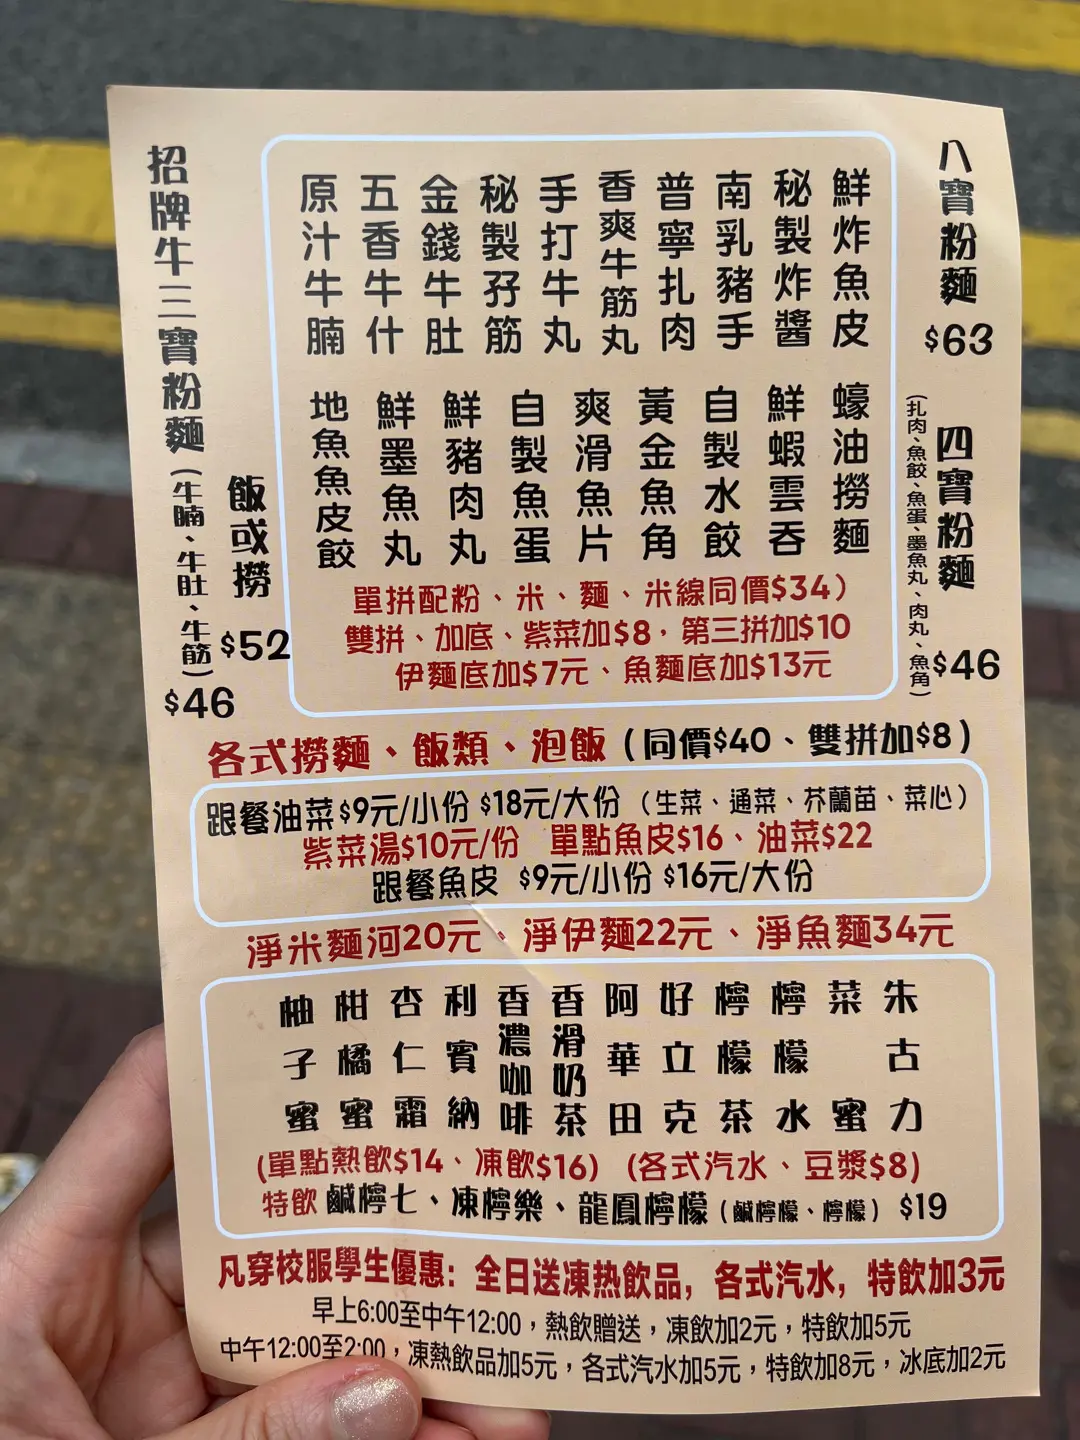 八寶粉麵
$63
四寶粉麵
(扎肉、魚餃、魚蛋、墨魚丸、肉丸、魚角)
$46
鮮炸魚皮
秘製炸醬
南乳豬手
普寧扎肉
香爽牛筋丸
手打牛丸
秘製孖筋
金錢牛肚
五香牛什
原汁牛腩
蠔油撈麵
鮮蝦雲吞
自製水餃
黃金魚角
爽滑魚片
自製魚蛋
鮮豬肉丸
鮮墨魚丸
地魚魚皮餃
單拼配粉、米、麵、米線同價$34)
雙拼、加底、紫菜加$8，第三拼加$10
伊麵底加$7元、魚麵底加$13元
招牌牛三寶粉麵(牛腩、牛肚、牛筋)
$46
飯或撈
$52
各式撈麵、飯類、泡飯(同價$40、雙拼加$8)
跟餐油菜$9元/小份 $18元/大份(生菜、通菜、芥蘭苗、菜心)
紫菜湯$10元/份 單點魚皮$16、油菜$22
跟餐魚皮 $9元/小份 $16元/大份
淨米麵河20元、淨伊麵22元、淨魚麵34元
朱古力
菜蜜
檸檬水
檸檬茶
好立克
阿華田
香滑奶茶
香濃咖啡
利賓納
杏仁霜
柑橘蜜
柚子蜜
(單點熱飲$14、凍飲$16) (各式汽水、豆漿$8)
特飲 鹹檸七、凍檸樂、龍鳳檸檬(鹹檸檬、檸檬) $19
凡穿校服學生優惠：全日送凍热飲品，各式汽水，特飲加3元
早上6:00至中午12:00，熱飲贈送，凍飲加2元，特飲加5元
中午12:00至2:00，凍熱飲品加5元，各式汽水加5元，特飲加8元，冰底加2元